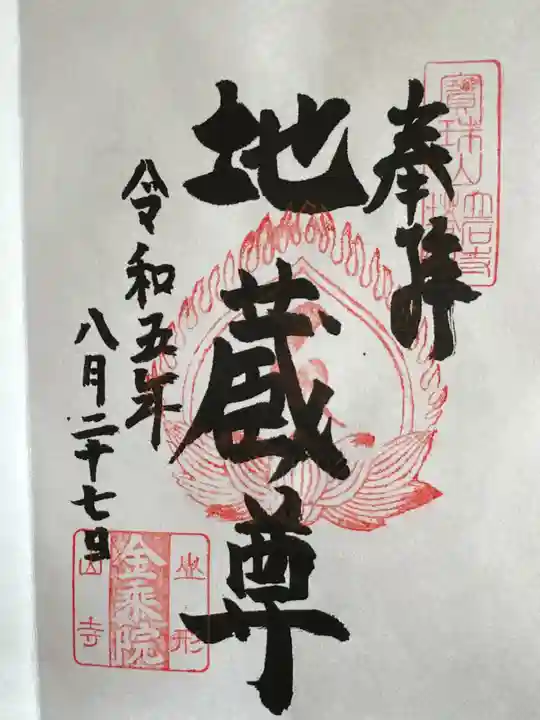 奉拝
地蔵尊
令和五年
八月二十七日
山形
金乗院
山寺